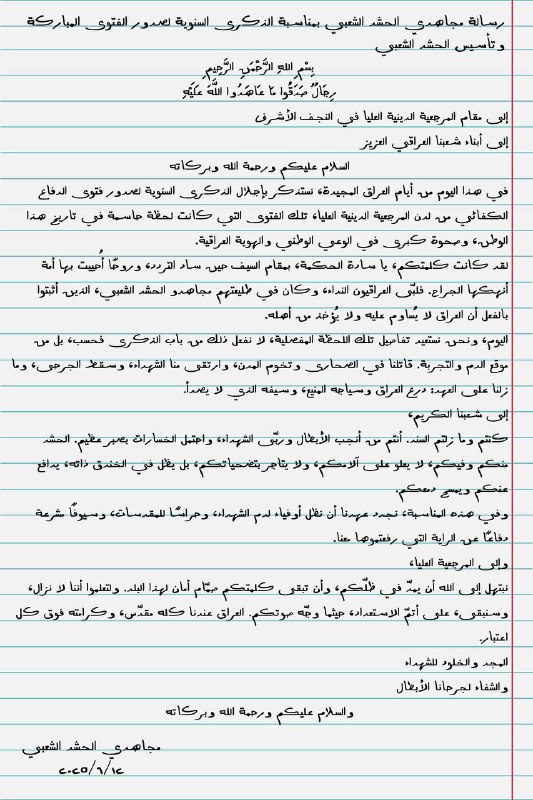 رسالة مجاهدي الحشد الشعبي بمناسبة الذكرى السنوية لصدور الفتوى المباركة
وتأسيس الحشد الشعبي
بِسْمِ اللهِ الرَّحْمَنِ الرَّحِيمِ
رِجَالٌ صَدَقُوا مَا عَاهَدُوا اللَّهَ عَلَيْهِ
إلى مقام المرجعية الدينية العليا في النجف الأشرف
إلى أبناء شعبنا العراقي العزيز
السلام عليكم ورحمة الله وبركاته
في هذا اليوم من أيام العراق المجيدة، نستذكر بإجلال الذكرى السنوية لصدور فتوى الدفاع
الكفائي من لدن المرجعية الدينية العليا، تلك الفتوى التي كانت لحظة حاسمة في تاريخ هذا
الوطن، وصحوة كبرى في الوعي الوطني والهوية العراقية.
لقد كانت كلمتكم، يا سادة الحكمة، بمقام السيف حين ساد التردد، وروحًا أُحييت بها أمة
أنهكها الجراح. فلبّى العراقيون النداء، وكان في طليعتهم مجاهدو الحشد الشعبي، الذين أثبتوا
بالفعل أن العراق لا يُساوم عليه ولا يُؤخذ من أهله.
اليوم، ونحن نستعيد تفاصيل تلك اللحظة المفصلية، لا نفعل ذلك من باب الذكرى فحسب، بل من
موقع الدم والتجربة. قاتلنا في الصحارى وتخوم المدن، وارتقى منا الشهداء، وسقط الجرحى، وما
زلنا على العهد: درع العراق وسياجه المنيع، وسيفه الذي لا يصدأ.
إلى شعبنا الكريم،
كنتم وما زلتم السند. أنتم من أنجب الأبطال وربّى الشهداء، واحتمل الخسارات بصبر عظيم. الحشد
منكم وفيكم، لا يعلو على آلامكم، ولا يتاجر بتضحياتكم، بل يظل في الخندق ذاته، يدافع
عنكم ويمسح دمعكم.
وفي هذه المناسبة، نجدد عهدنا أن نظل أوفياء لدم الشهداء، وحراسًا للمقدسات، وسيوفًا مشرعة
دفاعًا عن الراية التي رفعتموها معنا.
وإلى المرجعية العليا،
نبتهل إلى الله أن يمدّ في ظلّكم، وأن تبقى كلمتكم صمّام أمان لهذا البلد. ولتعلموا أننا لا نزال،
وسنبقى، على أتمّ الاستعداد، حيثما وجّه صوتكم. العراق عندنا كله مقدّس، وكرامته فوق كل
اعتبار.
المجد والخلود للشهداء
والشفاء لجرحانا الأبطال
والسلام عليكم ورحمة الله وبركاته
مجاهدي الحشد الشعبي
٢٠٢٥/٦/١٢